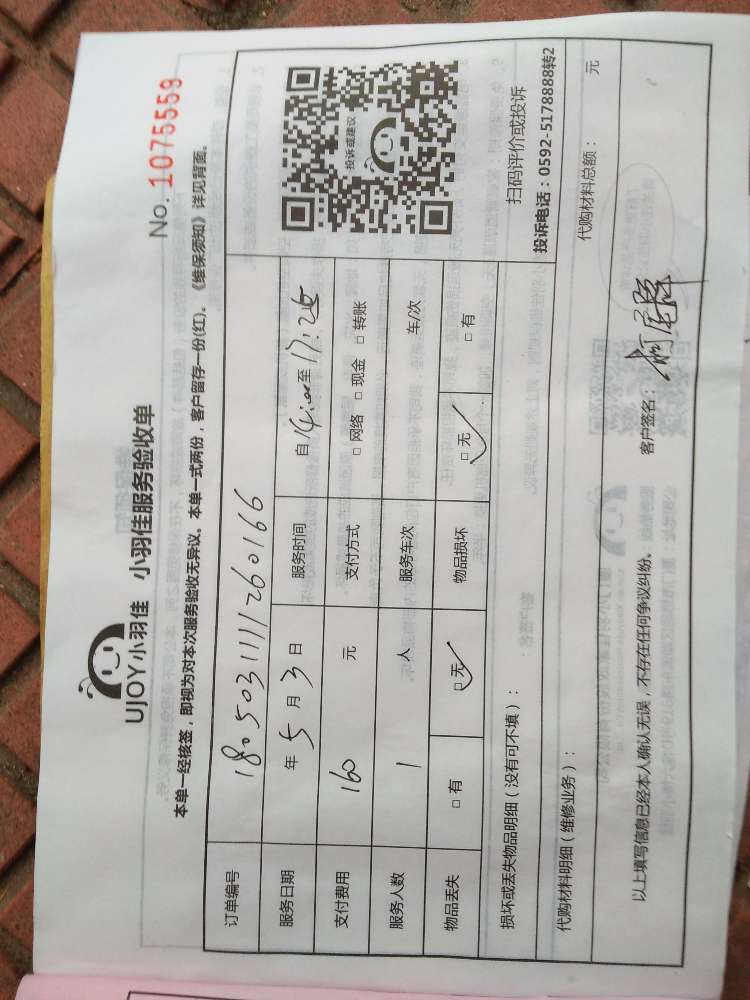 UJOY小羽佳 小羽佳服务验收单
No. 1075559
本单一经核签，即视为对本次服务验收无异议。本单一式两份，客户留存一份(红)。《维保须知》详见背面。
订单编号 180503111260166
服务日期 年 5 月 3 日 服务时间 自 14:00 至 17:25
支付费用 160 元 支付方式 □ 网络 □ 现金 □ 转账
服务人数 1 人 服务车次 车/次
物品丢失 □ 有 □ 无 ✓ 物品损坏 □ 无 ✓ □ 有
投诉或建议
扫码评价或投诉
投诉电话：0592-5178888转2
损坏或丢失物品明细（没有可不填）：
代购材料明细（维修业务）： 代购材料总额： 元
以上填写信息已经本人确认无误，不存在任何争议纠纷。 客户签名：